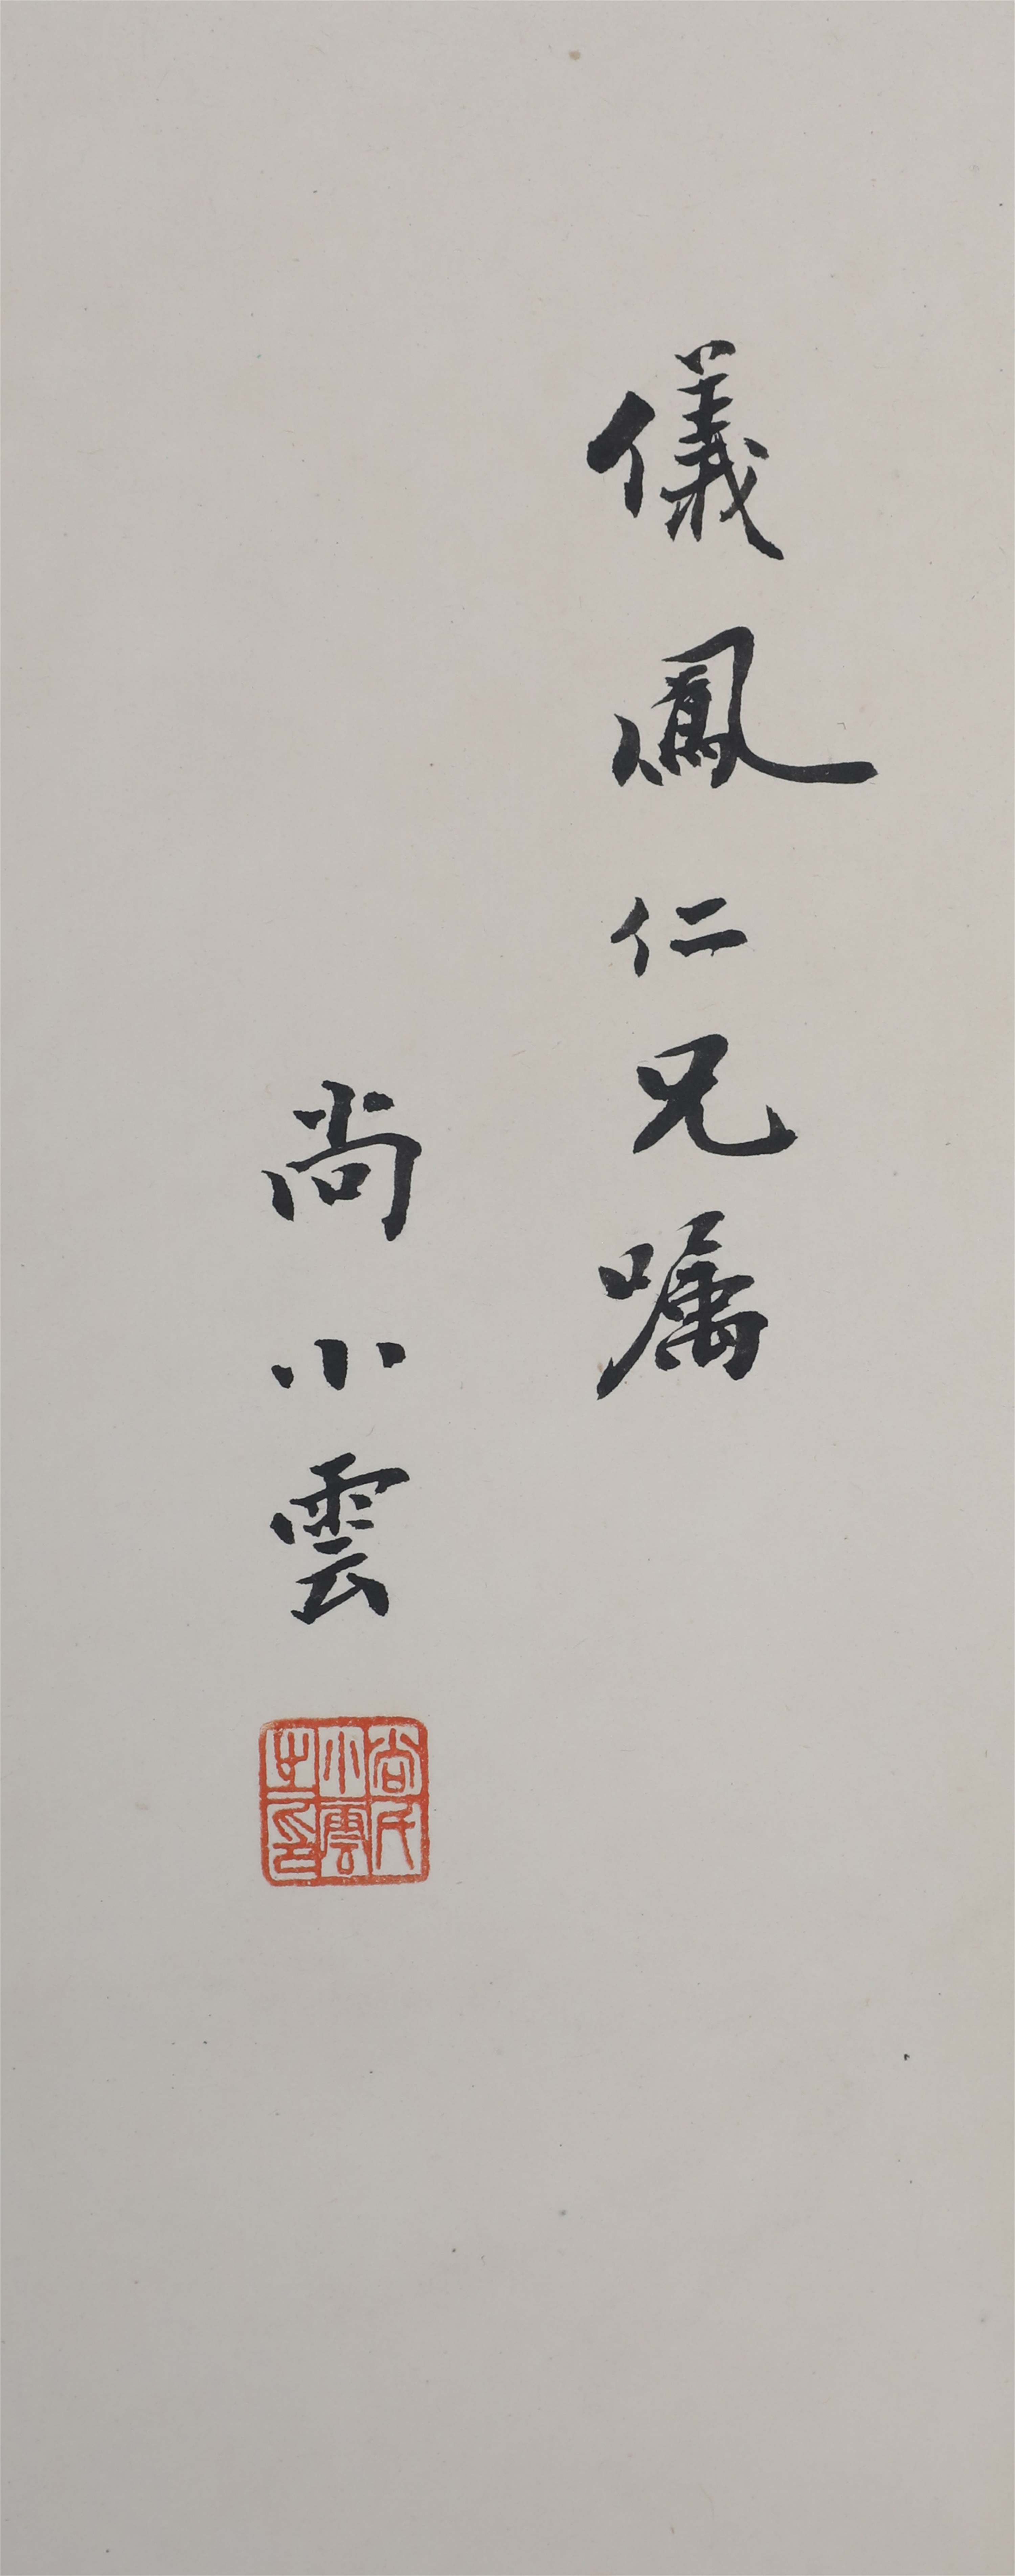 儀鳳仁兄嘱
尚小雲
尚氏
小雲
之印